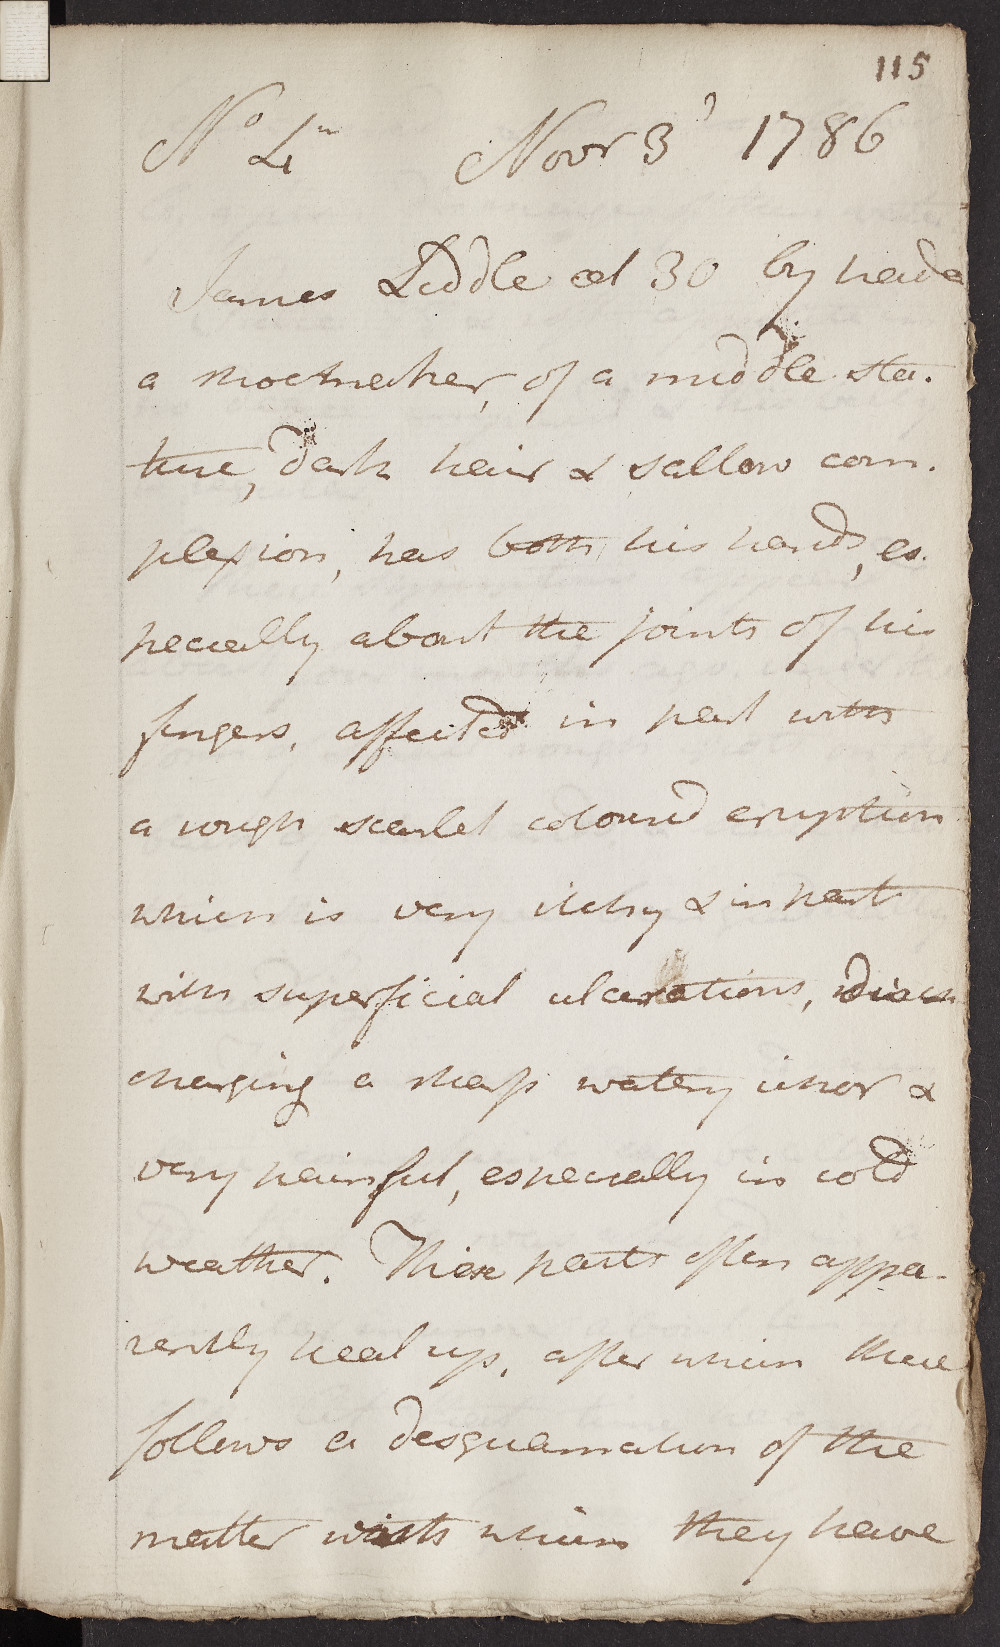 115
No 4 Novr 3d 1786
James Liddle aet 30 by trade
a shoemaker, of a middle sta-
ture, dark hair & sallow com-
plexion, has both his hands, es-
pecially about the joints of his
fingers, affected in part with
a rough scarlet coloured eruption
which is very itchy & in part
with superficial ulcerations, dis
charging a sharp watery ichor &
very painful, especially in cold
weather. These parts often appa-
rently heal up, after which there
follows a desquamation of the
matter with which they have